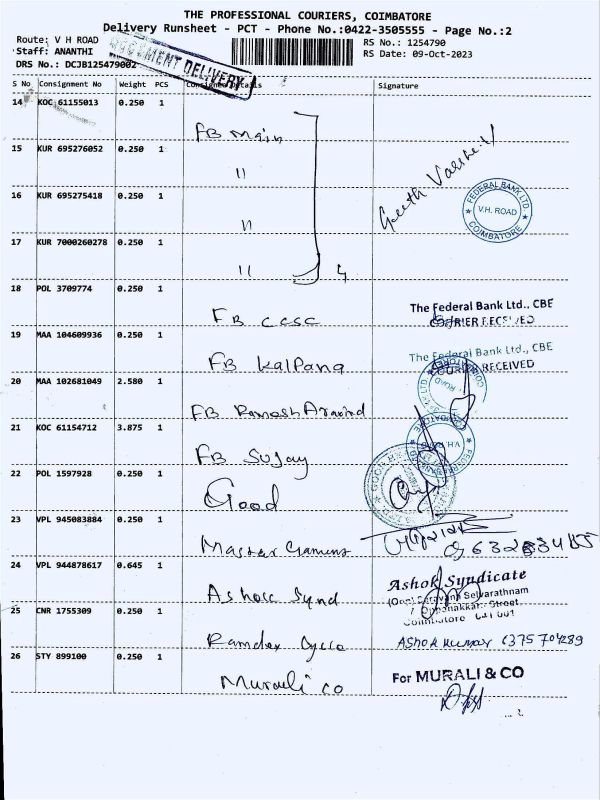 THE PROFESSIONAL COURIERS, COIMBATORE
Delivery Runsheet - PCT - Phone No.:0422-3505555 - Page No.:2
Route: V H ROAD
RS No.: 1254790
Staff: ANANTHI
RS Date: 09-Oct-2023
DRS No.: DCJB125479002
DOCUMENT DELIVERY
S No Consignment No Weight PCS Consignee Details Signature
14 KOC 61155013 0.250 1
FB Main
15 KUR 695276052 0.250 1
"
16 KUR 695275418 0.250 1
"
FEDERAL BANK LTD.
V.H. ROAD
COIMBATORE
17 KUR 7000260278 0.250 1
" 4
18 POL 3709774 0.250 1
FB CCSC
The Federal Bank Ltd., CBE
COURIER RECEIVED
19 MAA 104609936 0.250 1
FB Kalpana
The Federal Bank Ltd., CBE
COURIER RECEIVED
20 MAA 102681049 2.580 1
FB Ramesh Aravind
21 KOC 61154712 3.875 1
FB Sujay
V.H. ROAD
22 POL 1597928 0.250 1
Good
23 VPL 945083884 0.250 1
Master
24 VPL 944878617 0.645 1
Ashok Synd
Ashok Syndicate
(Opp) Saravana Selvarathnam
Oppanakkara Street
Coimbatore 641 001
25 CNR 1755309 0.250 1
Ramdev
Ashok kumar 6375704289
26 STY 899100 0.250 1
Murali co
For MURALI & CO